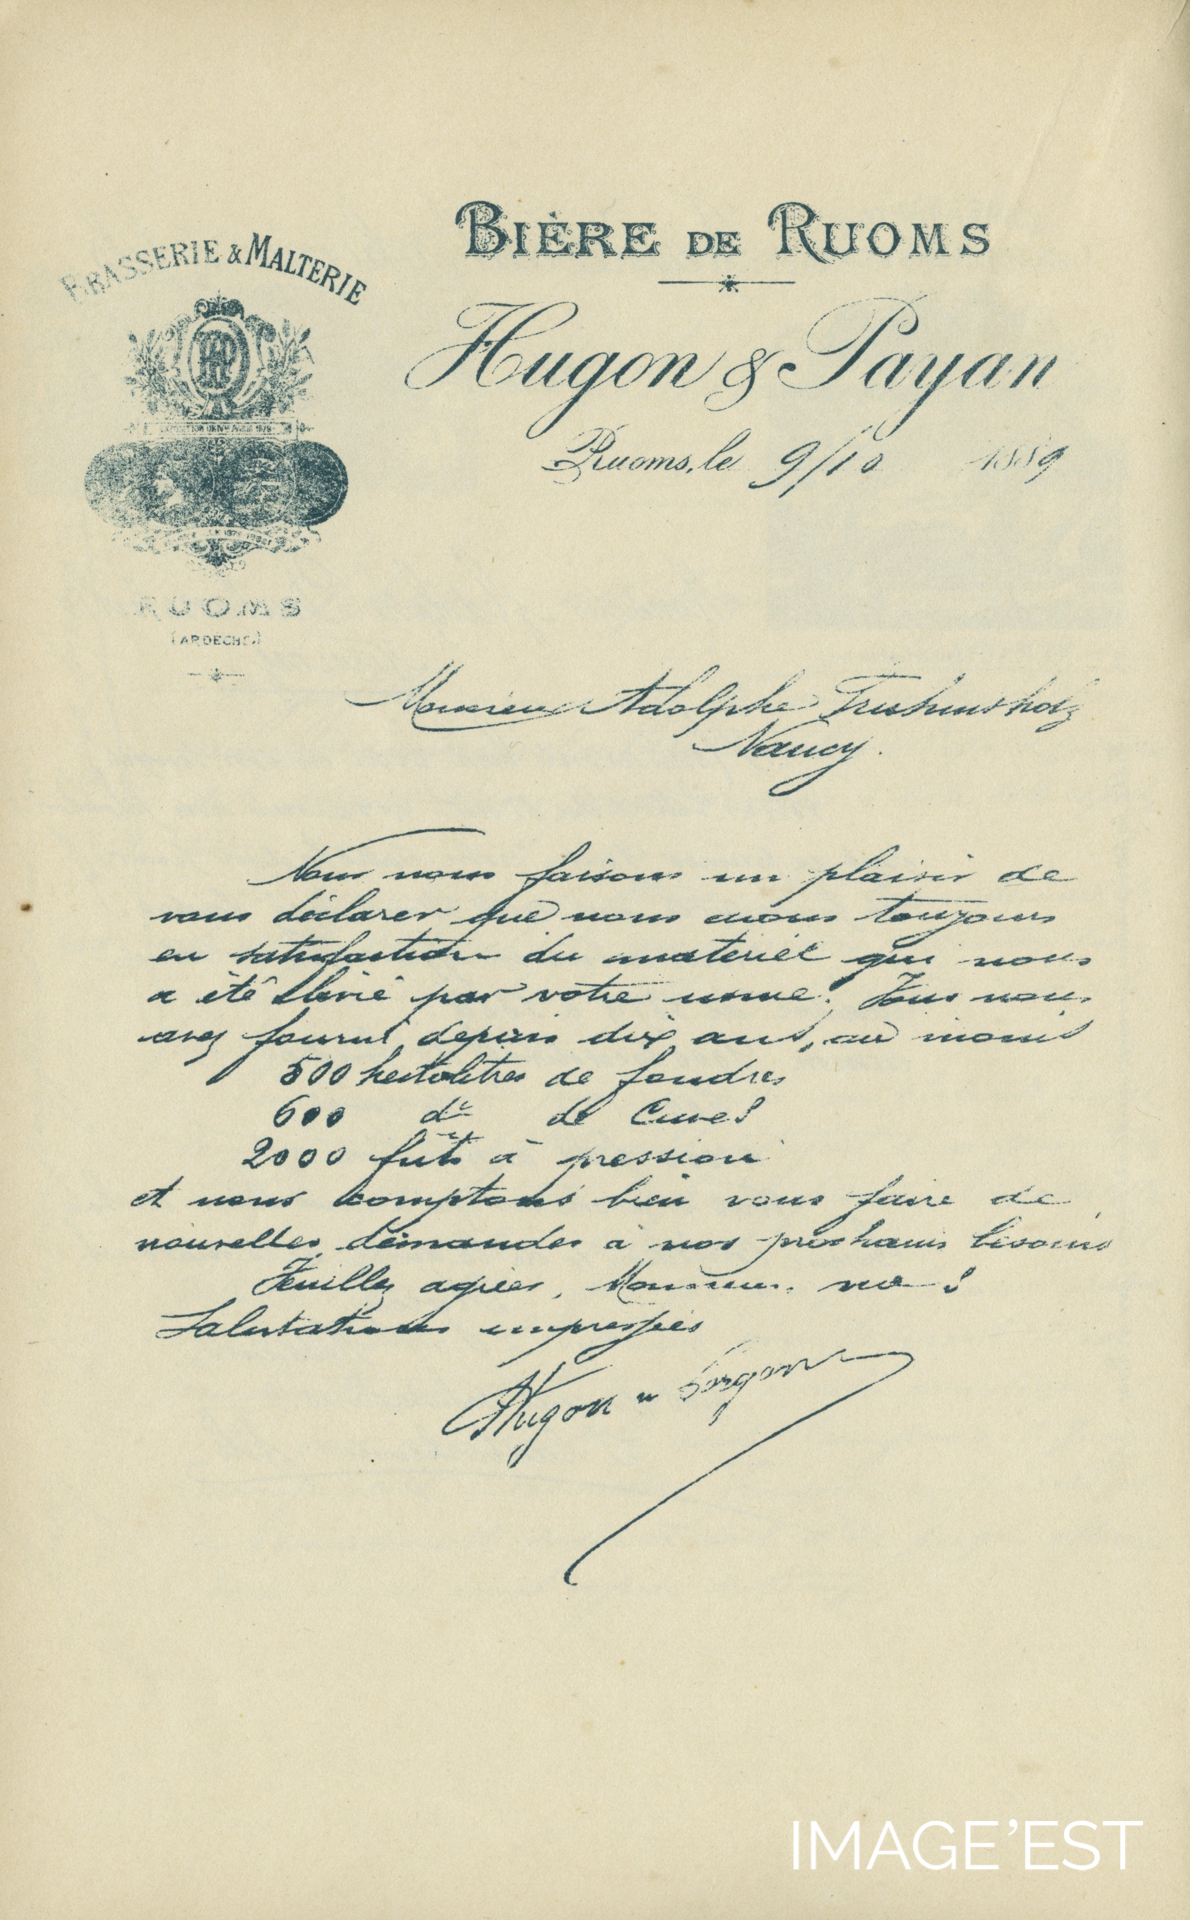 BRASSERIE & MALTERIE
HP
RUOMS
(ARDÈCHE)
BIÈRE DE RUOMS
Hugon & Payan
Ruoms, le 9/10 1889
Monsieur Adolphe Fruhinsholz
Nancy.
Nous nous faisons un plaisir de
vous déclarer que nous avons toujours
eu satisfaction du matériel qui nous
a été livré par votre usine. Vous nous
avez fourni, depuis dix ans, au moins
500 hectolitres de foudres
600 do de Cuves
2000 fûts à pression
et nous comptons bien vous faire de
nouvelles demandes à nos prochains besoins
Veuillez agréer, Monsieur, nos
Salutations empressées
Hugon
IMAGE'EST